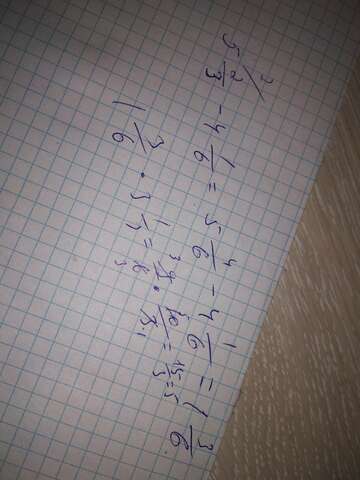 5 2/3 - 4 1/6 = 5 4/6 - 4 1/6 = 1 3/6
1 3/6 · 3 1/3 = = 15/3 = 5